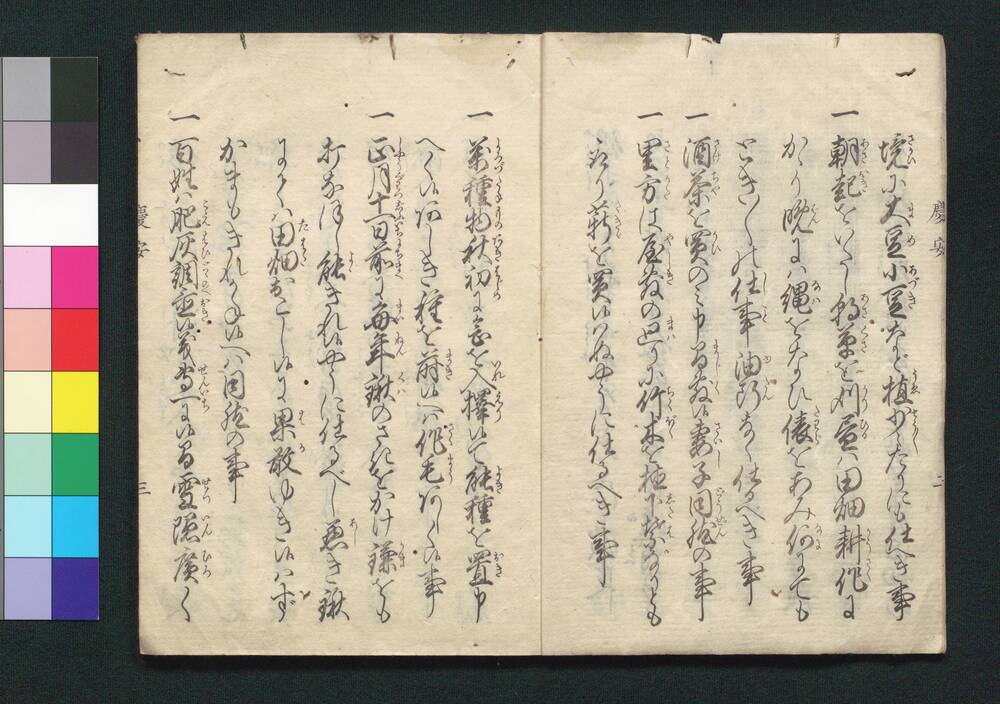 境に大豆小豆など植少々たりにも仕べき事
一 朝起をいたし朝草を刈昼ハ田畑耕作に
かゝり晩にハ縄をなひ俵をあみ何にても
それ〳〵の仕事油断なく仕るべき事
一 酒茶を買のミ申間敷候妻子同然の事
一 里方は屋敷の廻りに竹木を植下葉なりとも
取り薪を買候ハぬやうに仕るべき事
慶安
一 萬種物秋初に念を入択候て能種を置申
べく候あしき種を蒔候へハ作毛あしく候事
一 正月十一日前に毎年鍬のさきをかけ鎌をも
打なほし能きれ候やうに仕るべし悪き鍬
にてハ田畑おこし候に果敢ゆき候ハず
かまもきれかね候へハ同然の事
一 百姓ハ肥灰調置候儀専一に候間雪隠廣く
慶安
三